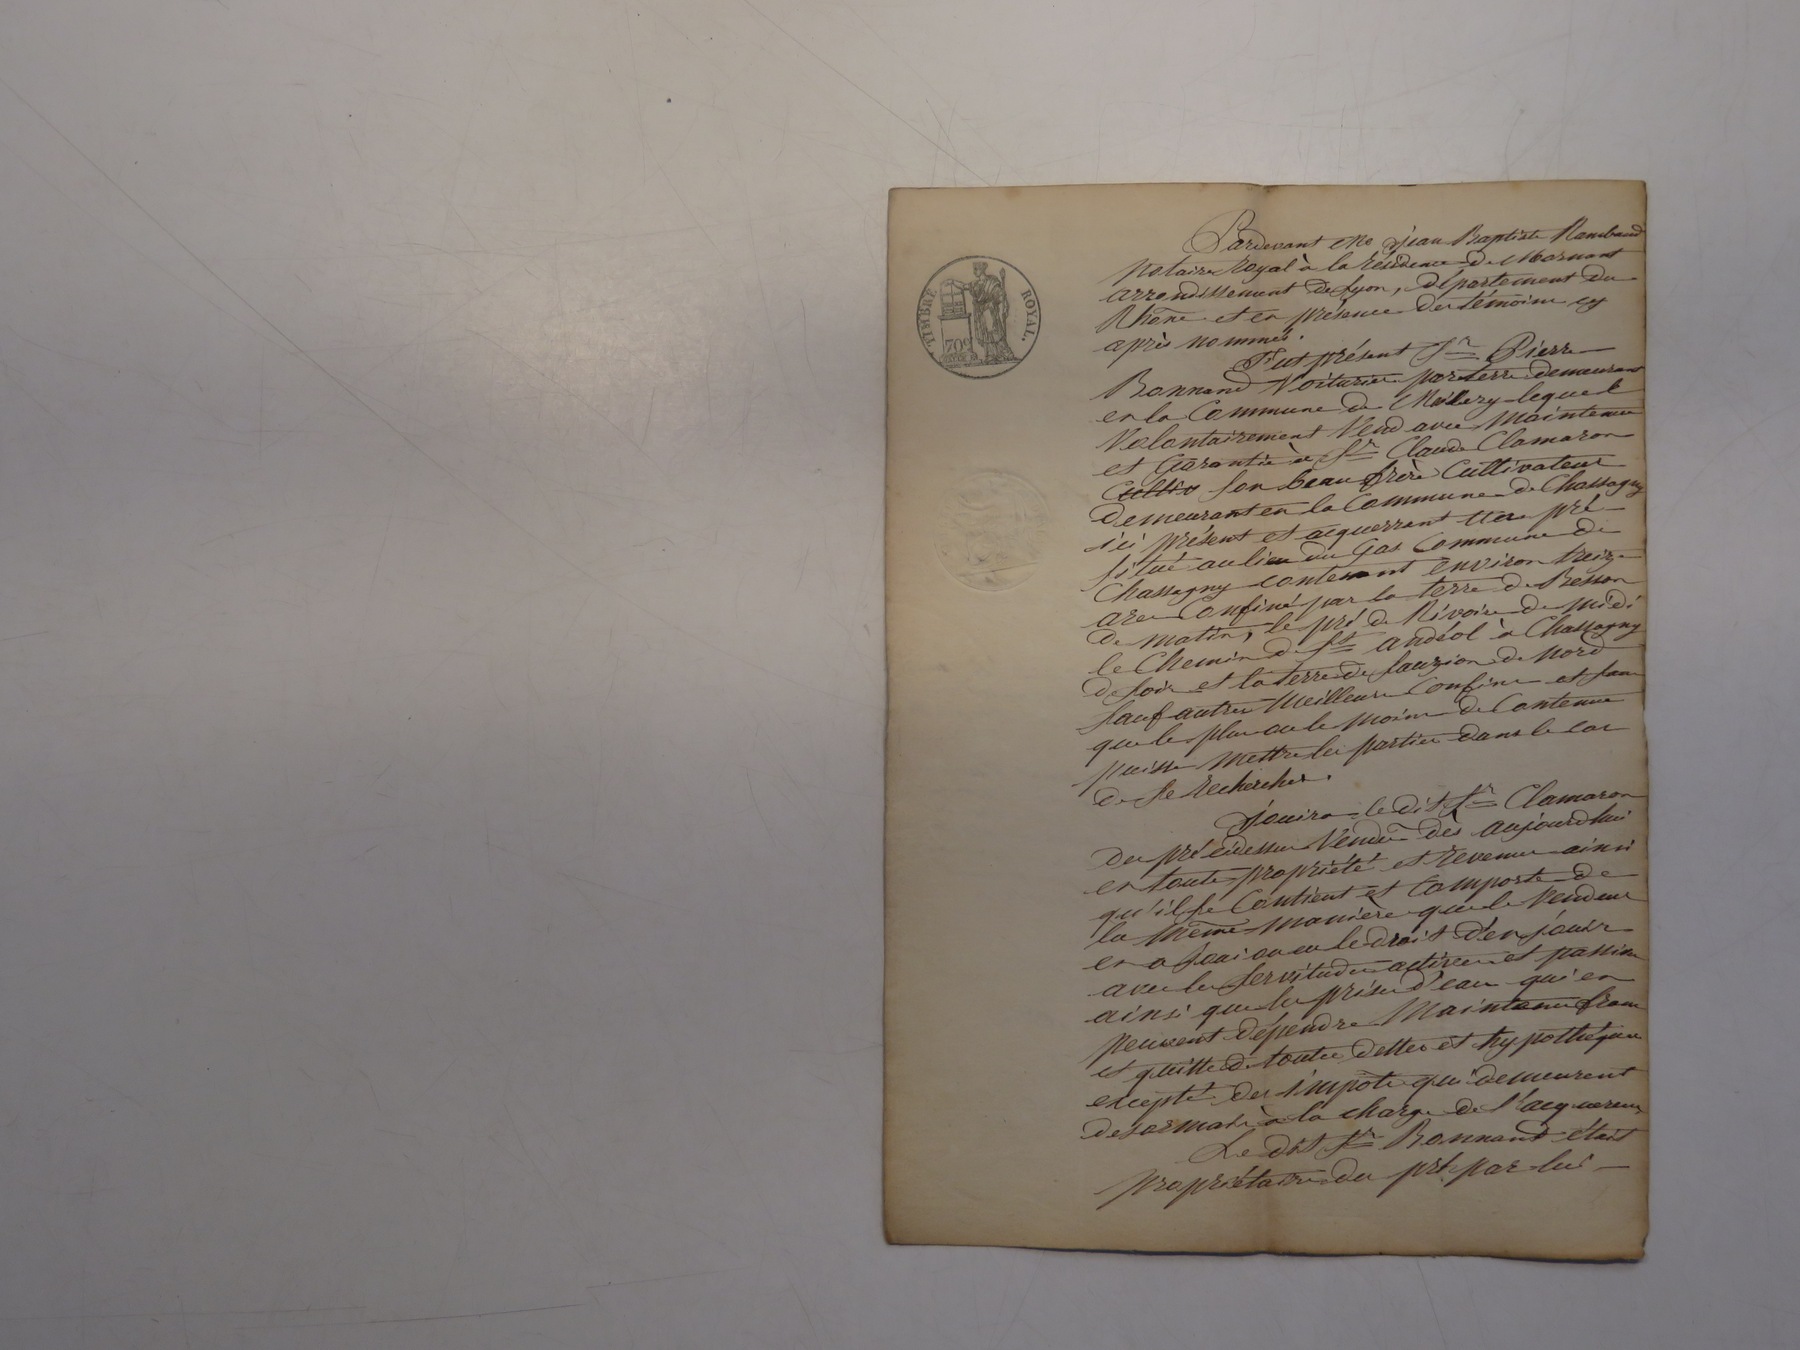 TIMBRE ROYAL.
70c
Pardevant Me Jean Baptiste Rambaud
Notaire Royal à la résidence de Mornant
arrondissement de Lyon, département du
Rhône et en présence des témoins cy
après nommés.
Fut présent Sr Pierre
Bonnand Voiturier par terre demeurant
en la Commune de Millery lequel
Volontairement Vend avec Maintenue
et Garantie à Sr Claude Clamaron
son beau frère Cultivateur
demeurant en la Commune de Chassagny
ici présent et acquerrant un pré
situé au lieu du Gas Commune de
Chassagny contenant environ treize
ares Confiné par la terre de Besson
de matin, le pré de Rivoire de midi
le Chemin de St andéol à Chassagny
de soir et la terre de Lauzion de Nord
sauf autres Meilleurs Confins et sans
que le plus ou le Moins de Contenue
puisse Mettre les parties dans le cas
de se rechercher.
Jouira le dit Sr Clamaron
du pré cidessus Vendu dès aujourdhui
en toute propriété et revenus ainsi
qu'il se Contient et Comporte de
la Même Manière que le Vendeur
en a joui ou eu le droit d'en jouir
avec les servitudes actives et passives
ainsi que les prises d'eau qui en
peuvent dépendre Maintenu franc
et quitte de toutes dettes et hypothèques
excepté des impôts qui demeurent
desormais à la charge de l'acquéreur
Le dit Sr Bonnand était
propriétaire du pré par lui